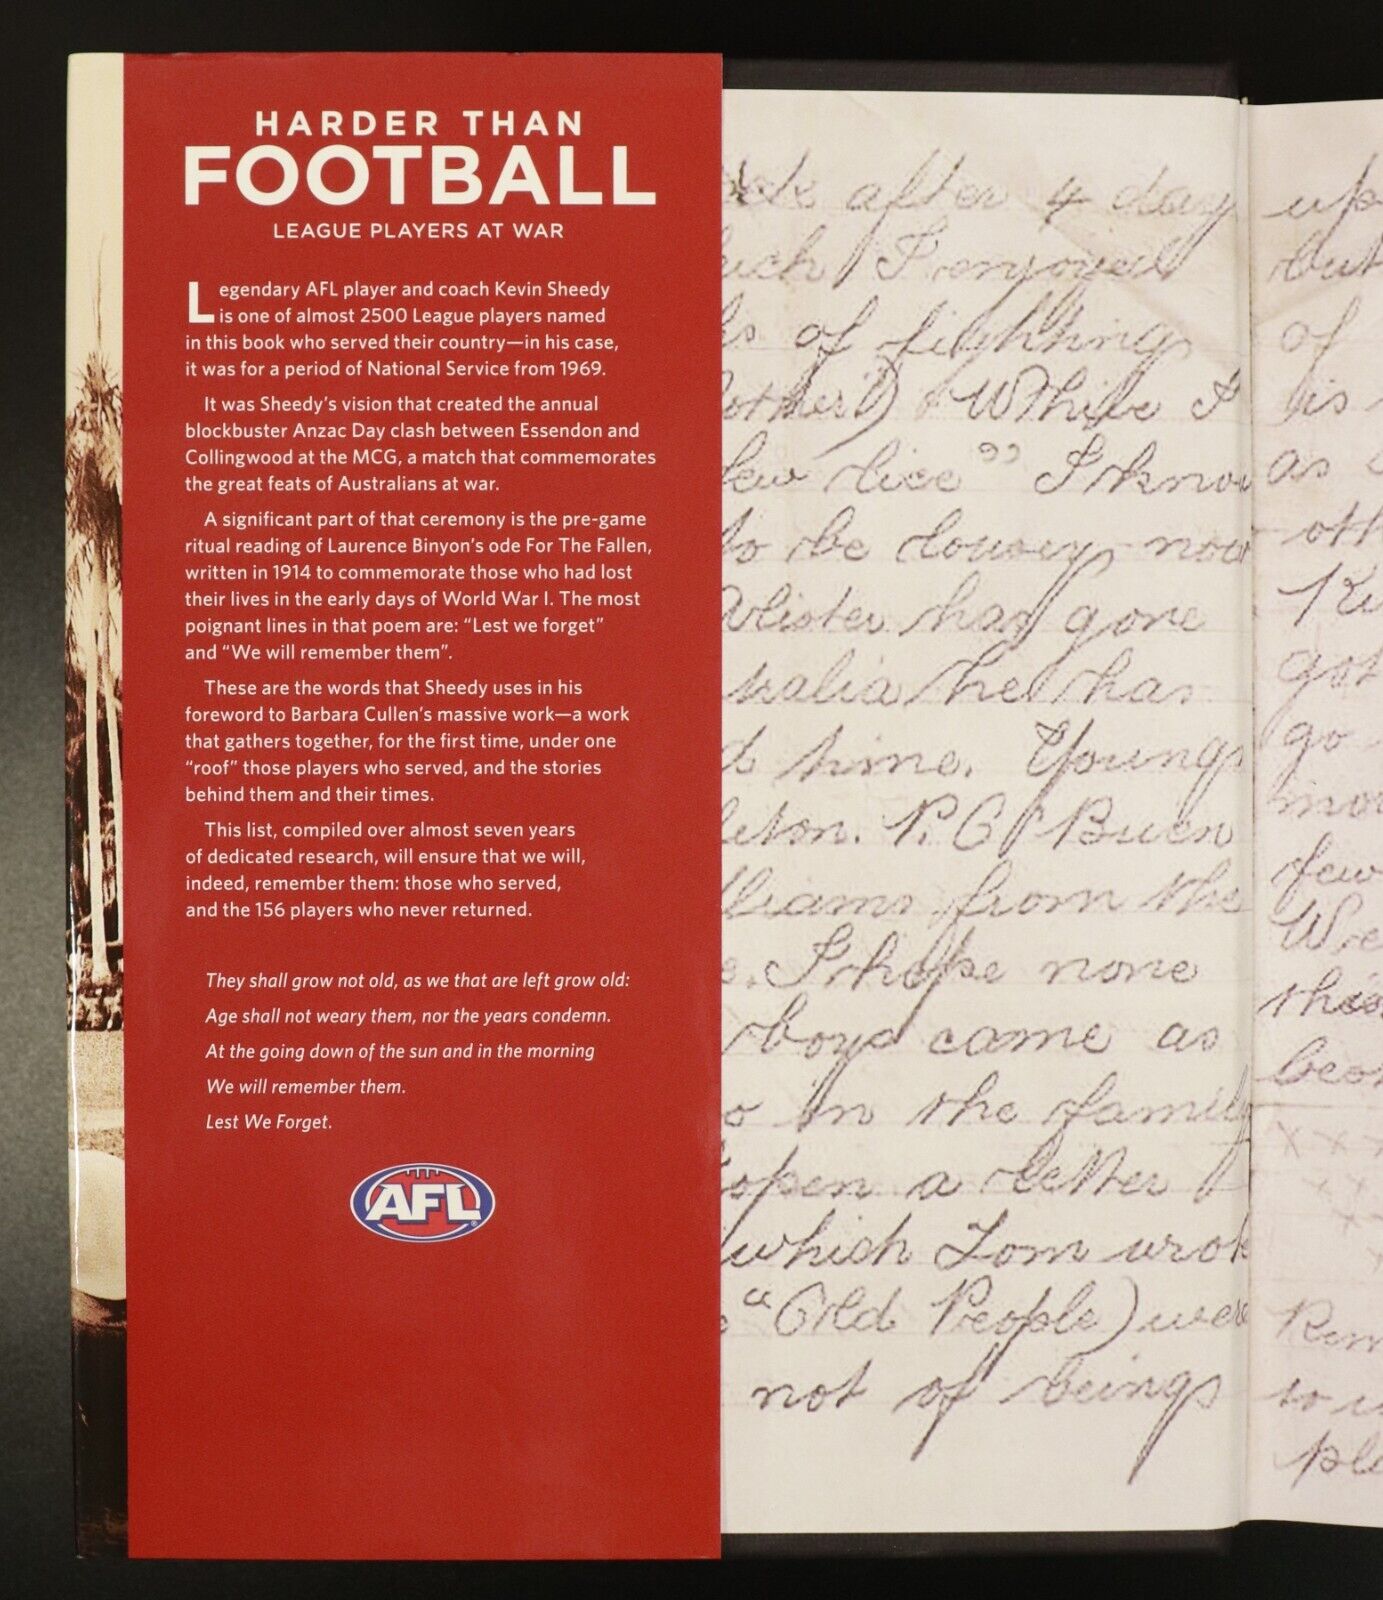 HARDER THAN
FOOTBALL
LEAGUE PLAYERS AT WAR
Legendary AFL player and coach Kevin Sheedy
is one of almost 2500 League players named
in this book who served their country—in his case,
it was for a period of National Service from 1969.
It was Sheedy's vision that created the annual
blockbuster Anzac Day clash between Essendon and
Collingwood at the MCG, a match that commemorates
the great feats of Australians at war.
A significant part of that ceremony is the pre-game
ritual reading of Laurence Binyon's ode For The Fallen,
written in 1914 to commemorate those who had lost
their lives in the early days of World War I. The most
poignant lines in that poem are: “Lest we forget”
and “We will remember them”.
These are the words that Sheedy uses in his
foreword to Barbara Cullen's massive work—a work
that gathers together, for the first time, under one
“roof” those players who served, and the stories
behind them and their times.
This list, compiled over almost seven years
of dedicated research, will ensure that we will,
indeed, remember them: those who served,
and the 156 players who never returned.
They shall grow not old, as we that are left grow old:
Age shall not weary them, nor the years condemn.
At the going down of the sun and in the morning
We will remember them.
Lest We Forget.
AFL
after 4 day
I enjoyed
of fighting
While I
lice” I know
to be lousy now
has gone
he has
time. Young
P. C.
from the
I hope none
boys came as
in the family
open a letter
which Tom wrote
“Old People) were
not of being
up
but
of
is
as
go
few